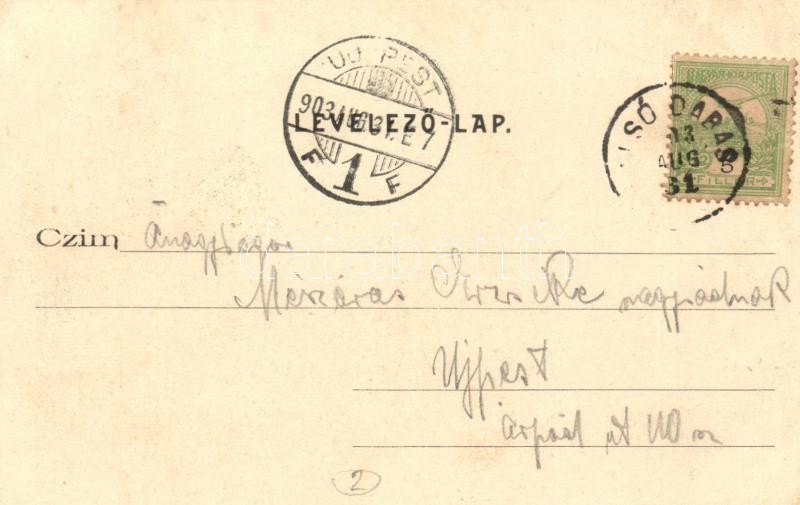 UJ PEST
903 AUG 31. E 7
F 1 F
LEVELEZŐ-LAP.
MAGYAR KIR. POSTA
FILLER
ALSÓ DABAS
03
AUG
31
Czim Őnagysága
Mészáros nagysádnak
Ujpest
Árpád út 110 sz
2
darabanth